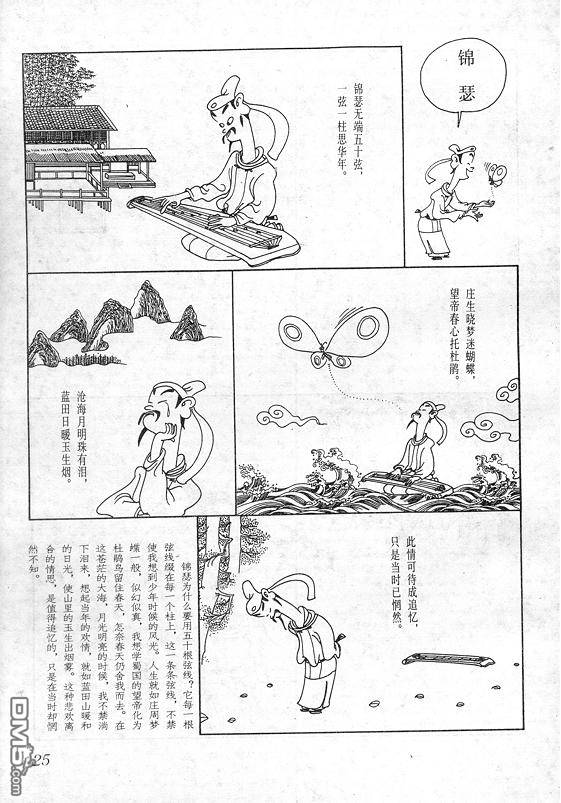 锦瑟
锦瑟无端五十弦，
一弦一柱思华年。
庄生晓梦迷蝴蝶，
望帝春心托杜鹃。
沧海月明珠有泪，
蓝田日暖玉生烟。
此情可待成追忆，
只是当时已惘然。
锦瑟为什么要用五十根弦线？它每一根
弦线缀在每一个柱上，这一条条弦线，不禁
使我想到少年时候的风光。人生就如庄周梦
蝶一般，似幻似真，我想学蜀国的望帝化为
杜鹃鸟留住春天，怎奈春天仍舍我而去。在
这苍茫的大海，月光明亮的时候，我不禁淌
下泪来，想起当年的欢情，就如蓝田山暖和
的日光，使山里的玉生出烟雾。这种悲欢离
合的情思，是值得追忆的，只是在当时却惘
然不知。
25
DM5.com